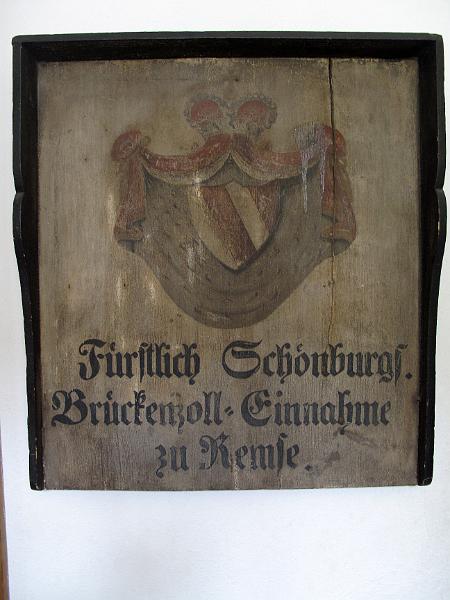 Fürstlich Schönburgs.
Brückenzoll-Einnahme
zu Remse.